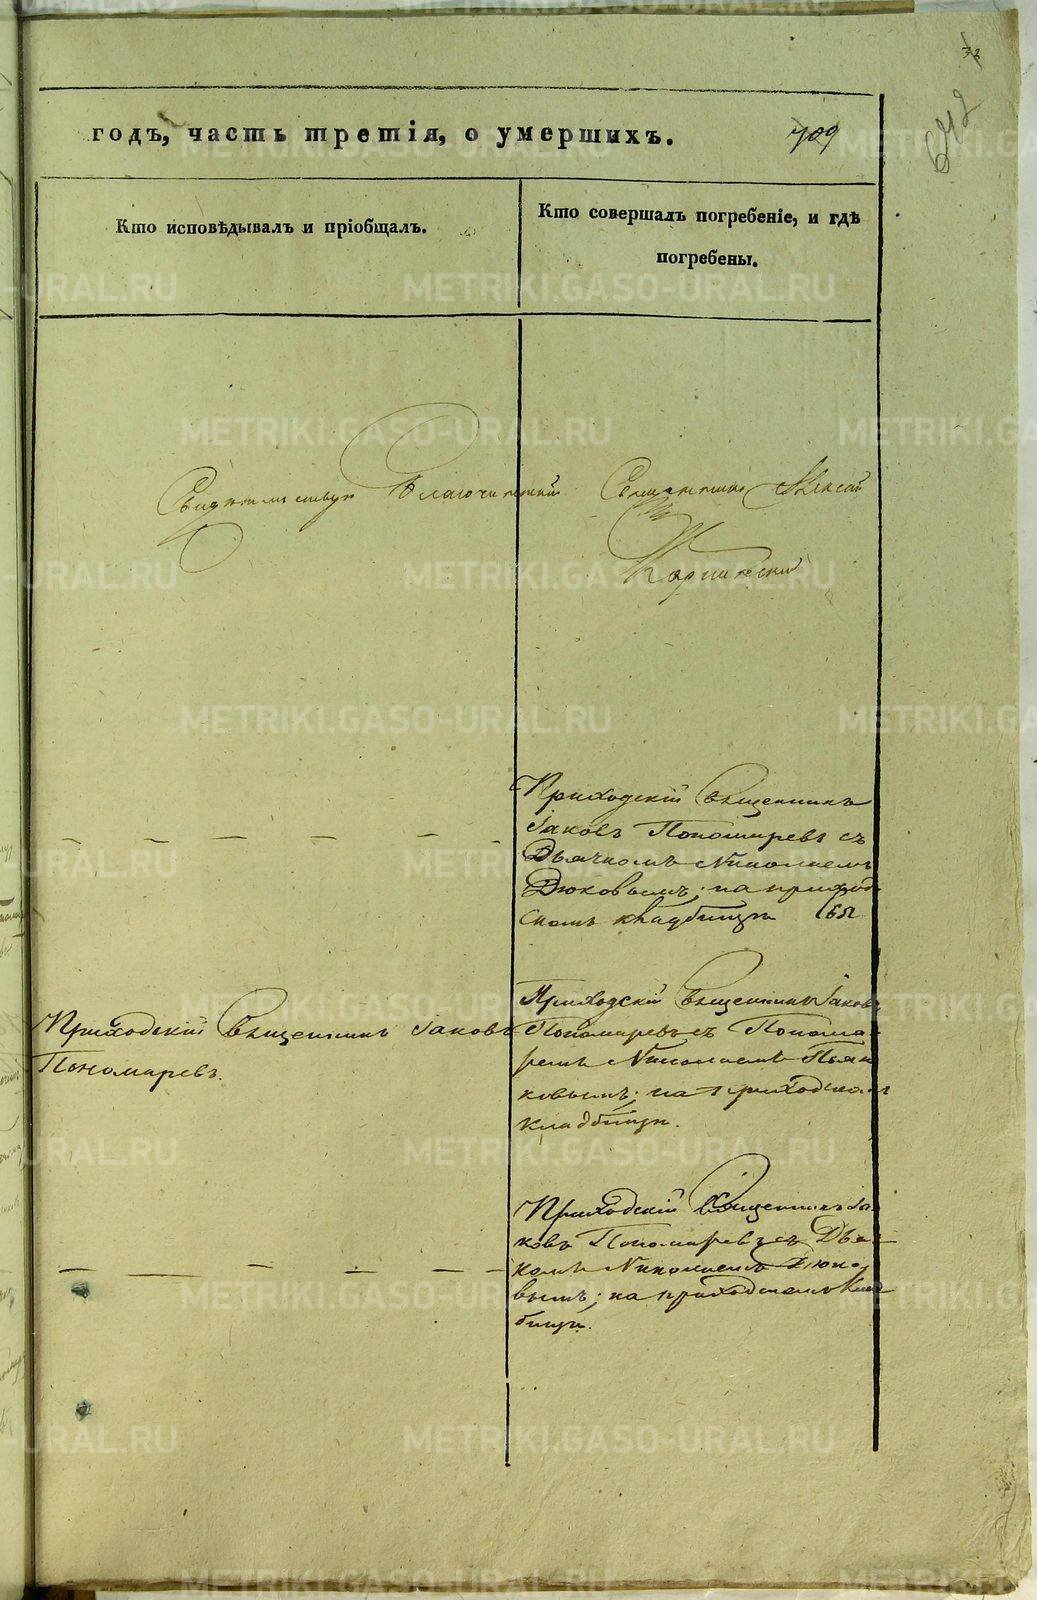 32
642
годъ, часть третія, о умершихъ. 709
Кто исповѣдывалъ и пріобщалъ.
Кто совершалъ погребеніе, и гдѣ
погребены.
Благочинный Священникъ Алексей
Приходскій Священникъ
Іаковъ Пономаревъ съ
Дьячкомъ Николаемъ
Дюковымъ; на приход
скомъ кладбищѣ
Приходскій Священникъ Іаковъ
Пономаревъ.
Приходскій Священникъ Іаковъ
Пономаревъ съ Понома
ремъ Николаемъ
ковымъ; на приходскомъ
кладбищѣ.
Приходскій Священникъ Іа
ковъ Пономаревъ съ Дьяч
комъ Николаемъ Дюко
вымъ; на приходскомъ клад
бищѣ.
METRIKI.GASO-URAL.RU